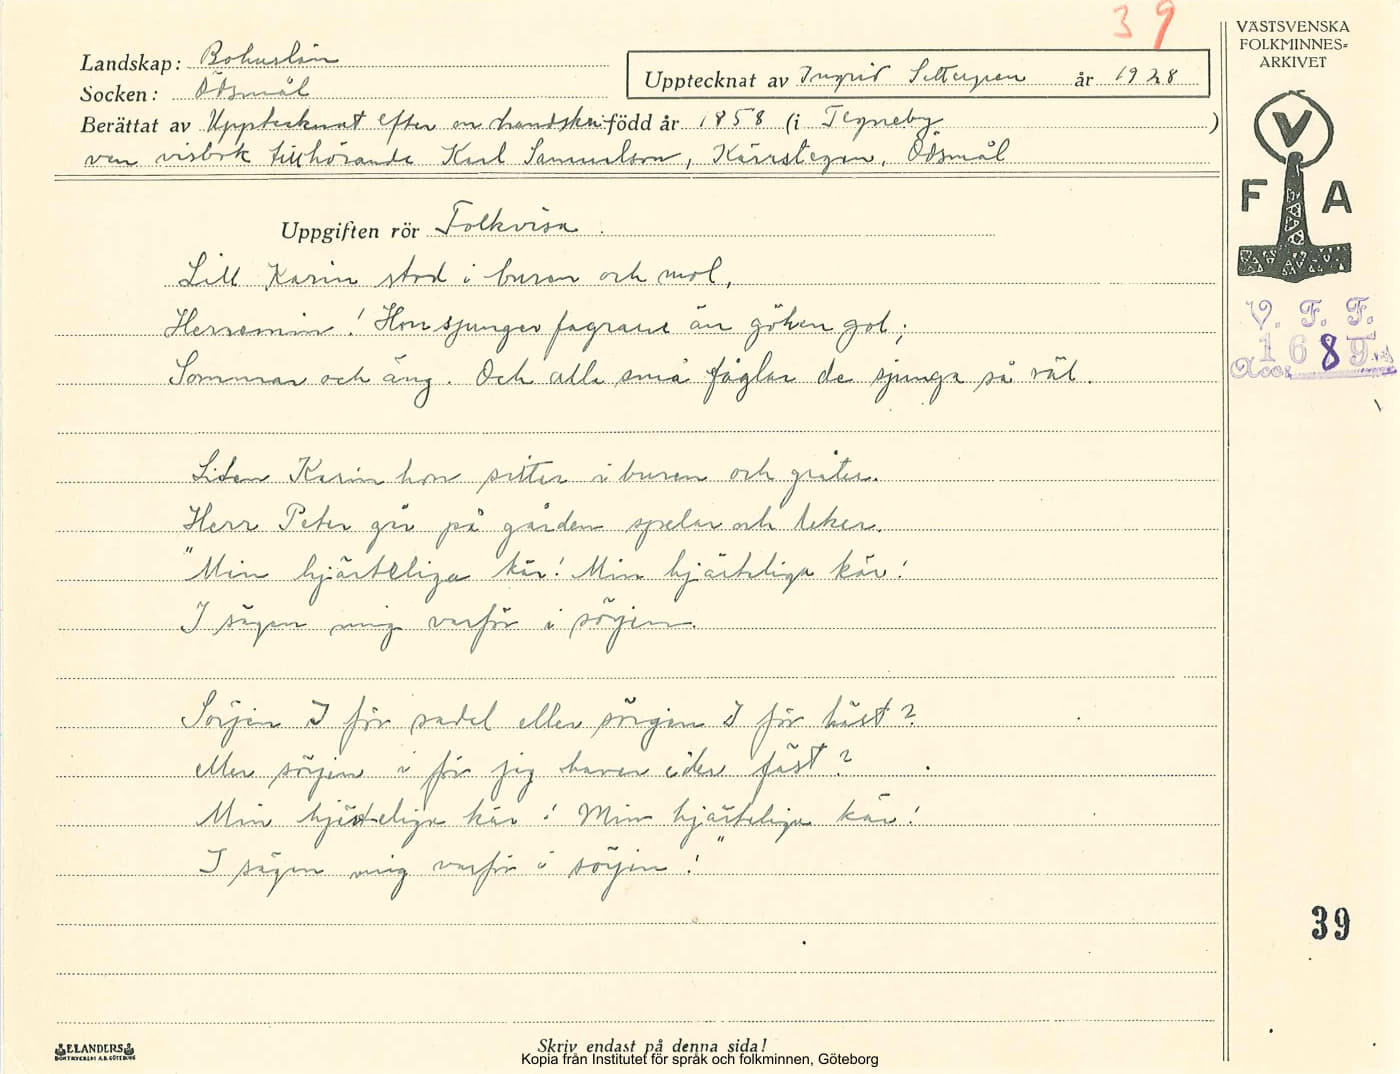 39
VÄSTSVENSKA
FOLKMINNES=
ARKIVET
Landskap: Bohuslän
Socken: Ödsmål
Upptecknat av Ingrid Settergren år 1928
Berättat av Upptecknat efter en handskri- född år 1858 (i Tegneby )
ven visbok tillhörande Karl Samuelson, Kärrstegen, Ödsmål
V
F A
Uppgiften rör Folkvisa.
Lill Karin stod i buren och mol,
Herremin! Hon sjunger fagrare än göken gol;
Sommar och äng. Och alla små fåglar de sjunga så väl.
V. F. F.
Acc. 1689
Liten Karin hon sitter i buren och gråter.
Herr Peter går på gården spelar och leker.
"Min hjärteliga kär! Min hjärteliga kär!
I sägen mig varför i sörjen.
Sörjen I för sadel eller sörgen I för häst?
eller sörjen i för jag haver eder fäst?
Min hjärteliga kär! Min hjärteliga kär!
I sägen mig varför i sörjen!"
39
ELANDERS
BOKTRYCKERI A.B. GÖTEBORG
Skriv endast på denna sida!
Kopia från Institutet för språk och folkminnen, Göteborg